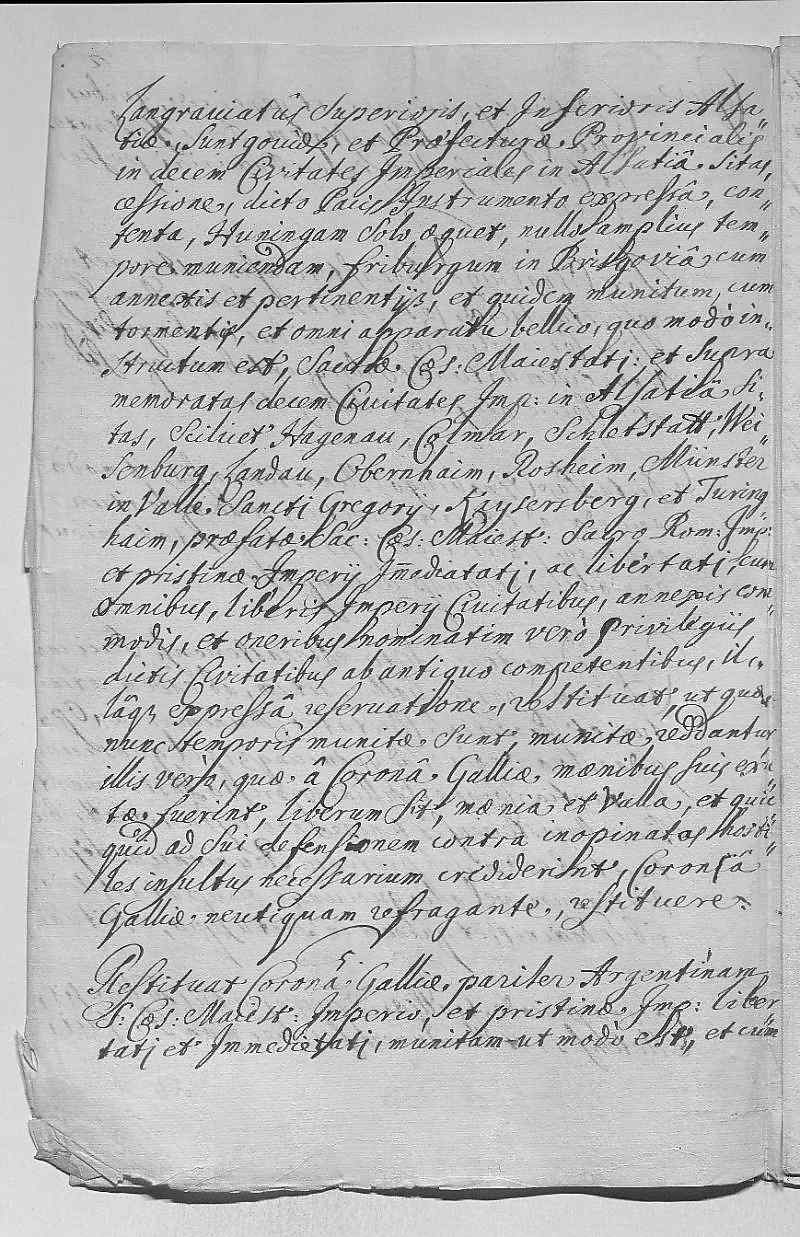 Langraviatûs Superioris, et Inferioris Alsa-
tiæ, Suntgoviæ, et Præfecturæ Provincialis
in decem Civitates Imperiales in Alsatiâ sitas,
cessione, dicto Pacis Instrumento expressâ, con-
tenta, Huningam solo æquet, nullo amplius tem-
pore muniendam, Friburgum in Brisgoviâ cum
annectis et pertinentijs, et quidem munitum, cum
tormentis, et omni apparatu bellico, quo modò in-
structum est, Sacræ Cæs: Maiestatj: et supra
memoratas decem Civitates Imp: in Alsatiâ si-
tas, scilicet Hagenau, Colmar, Schletstatt, Wei-
senburg, Landau, Obernhaim, Rosheim, Münster
in Valle Sancti Gregorij, Kaysersberg, et Turing-
haim, præfatæ Sac: Cæs: Maiest: Sacro Rom: Imp:
et pristinæ Imperij Im̄ediatatj, ac libertatj, cum
omnibus, liberis Imperij Civitatibus, annexis com-
modis, et oneribus nominatim verò privilegiis
dictis Civitatibus ab antiquo competentibus, il-
lâq3 expressâ reservatione, restituat, ut quæ
nunc temporis munitæ sunt, munitæ reddantur
illis verò, quæ â Coronâ Galliæ mænibus suis exu-
tæ fuerint, liberum sit, mænia et valla, et quic-
quid ad sui defensionem contra inopinatos hosti-
les insultus necessarium crediderint, Coronâ
Galliæ neutiquam refragante, restituere.
Restituat Coronâ Galliæ pariter Argentinam
S: Cæs: Maiest: Imperio, et pristinæ Imp: liber
tatj et Immedietatj, munitam ut modò est, et cum